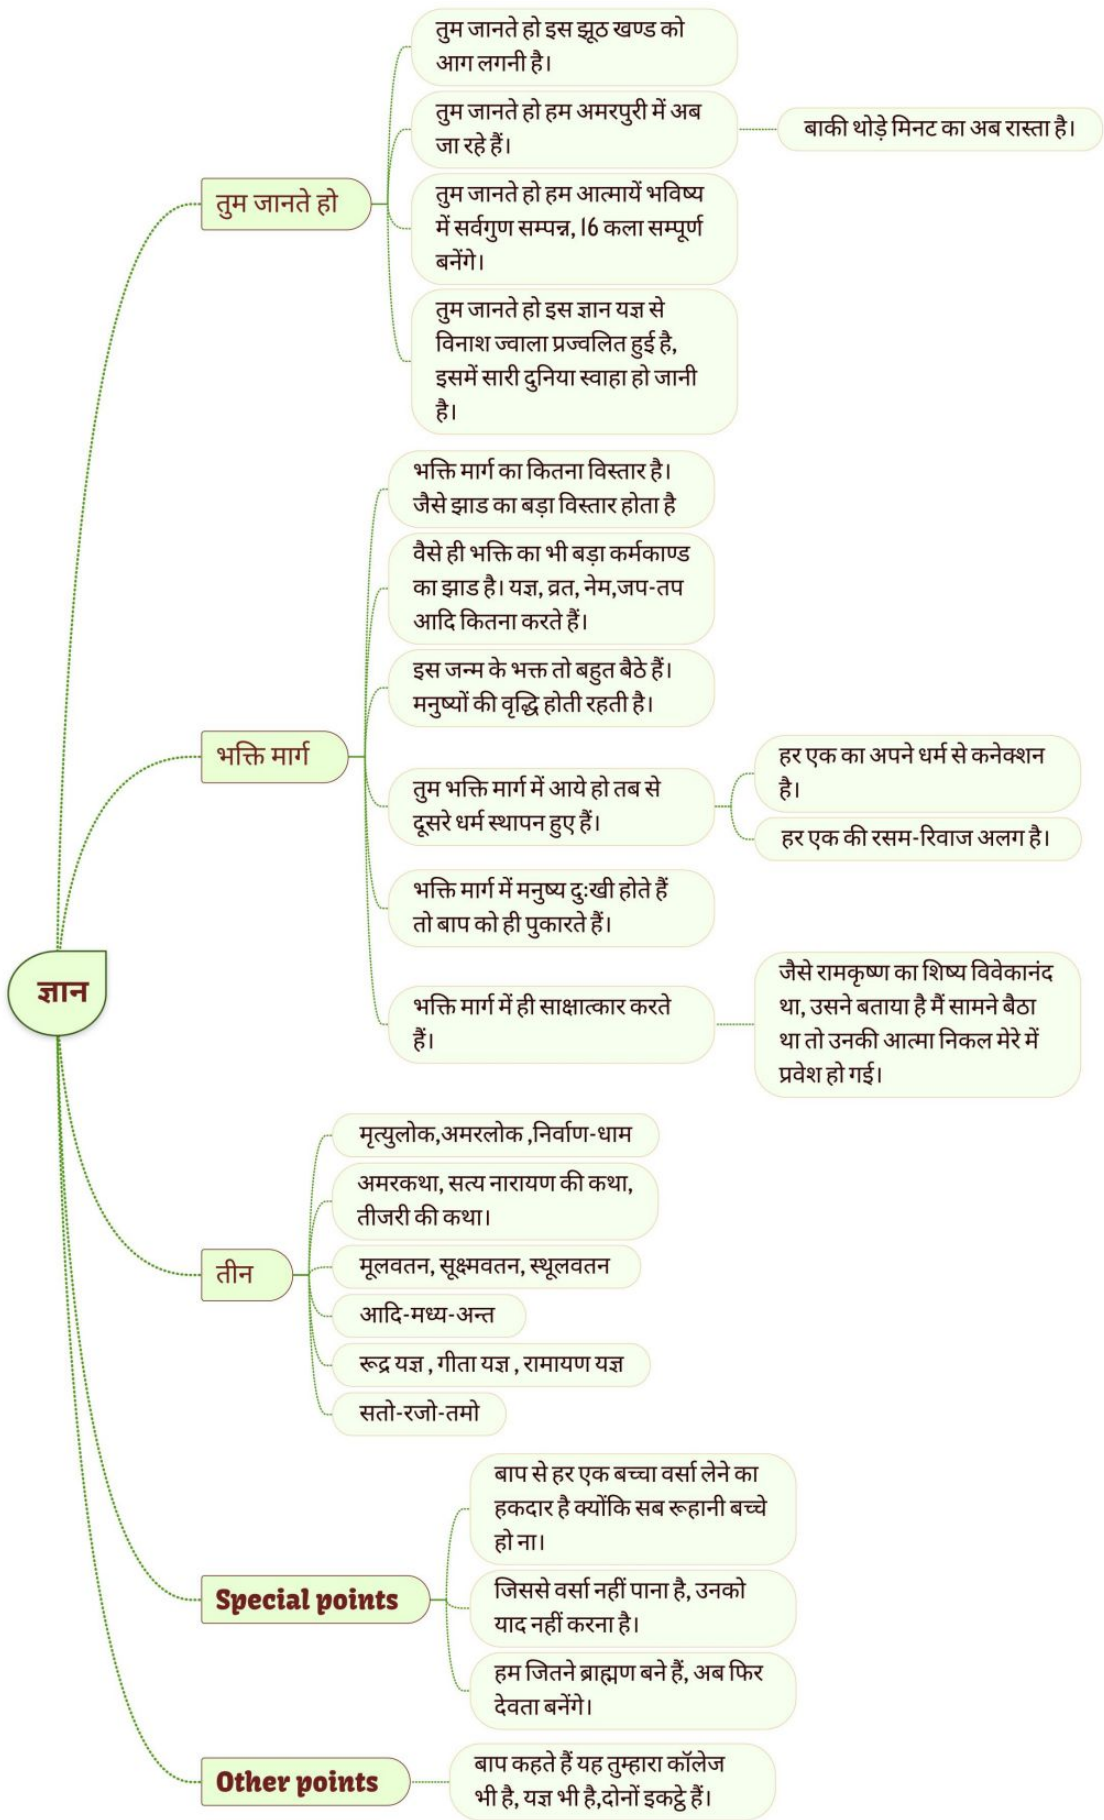 ज्ञान
तुम जानते हो
तुम जानते हो इस झूठ खण्ड को
आग लगनी है।
तुम जानते हो हम अमरपुरी में अब
जा रहे हैं।
बाकी थोड़े मिनट का अब रास्ता है।
तुम जानते हो हम आत्मायें भविष्य
में सर्वगुण सम्पन्न, 16 कला सम्पूर्ण
बनेंगे।
तुम जानते हो इस ज्ञान यज्ञ से
विनाश ज्वाला प्रज्वलित हुई है,
इसमें सारी दुनिया स्वाहा हो जानी
है।
भक्ति मार्ग
भक्ति मार्ग का कितना विस्तार है।
जैसे झाड का बड़ा विस्तार होता है
वैसे ही भक्ति का भी बड़ा कर्मकाण्ड
का झाड है। यज्ञ, व्रत, नेम,जप-तप
आदि कितना करते हैं।
इस जन्म के भक्त तो बहुत बैठे हैं।
मनुष्यों की वृद्धि होती रहती है।
तुम भक्ति मार्ग में आये हो तब से
दूसरे धर्म स्थापन हुए हैं।
हर एक का अपने धर्म से कनेक्शन
है।
हर एक की रसम-रिवाज अलग है।
भक्ति मार्ग में मनुष्य दुःखी होते हैं
तो बाप को ही पुकारते हैं।
भक्ति मार्ग में ही साक्षात्कार करते
हैं।
जैसे रामकृष्ण का शिष्य विवेकानंद
था, उसने बताया है मैं सामने बैठा
था तो उनकी आत्मा निकल मेरे में
प्रवेश हो गई।
तीन
मृत्युलोक,अमरलोक ,निर्वाण-धाम
अमरकथा, सत्य नारायण की कथा,
तीजरी की कथा।
मूलवतन, सूक्ष्मवतन, स्थूलवतन
आदि-मध्य-अन्त
रूद्र यज्ञ , गीता यज्ञ , रामायण यज्ञ
सतो-रजो-तमो
Special points
बाप से हर एक बच्चा वर्सा लेने का
हकदार है क्योंकि सब रूहानी बच्चे
हो ना।
जिससे वर्सा नहीं पाना है, उनको
याद नहीं करना है।
हम जितने ब्राह्मण बने हैं, अब फिर
देवता बनेंगे।
Other points
बाप कहते हैं यह तुम्हारा कॉलेज
भी है, यज्ञ भी है,दोनों इकट्ठे हैं।